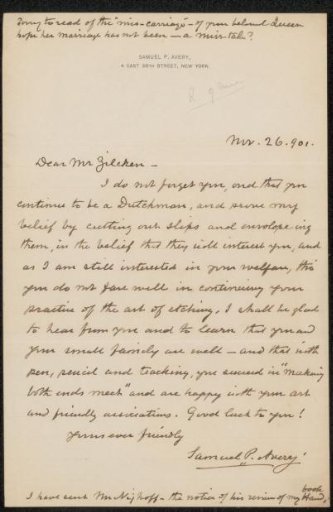 Sorry to read of the "mis-carriage" - of your beloved Queen
hope her marriage has not been - a miss-take?
SAMUEL P. AVERY,
4 EAST 38TH STREET, NEW YORK.
Nov. 26. 901.
Dear Mr Zilcken -
I do not forget you, and that you
continue to be a Dutchman, and prove my
belief by cutting out slips and enveloping
them, in the belief that they will interest you, and
as I am still interested in your welfare, tho
you do not fare well in continuing your
practice of the art of etching. I shall be glad
to hear from you and to learn that you and
your small family are well - and that with
pen, pencil and teaching, you succeed in "making
both ends meet" and are happy with your art
and friendly associations. Good luck to you!
Yours ever friendly
Samuel P. Avery
I have sent Mr Nijhoff - the notice of his review of my book